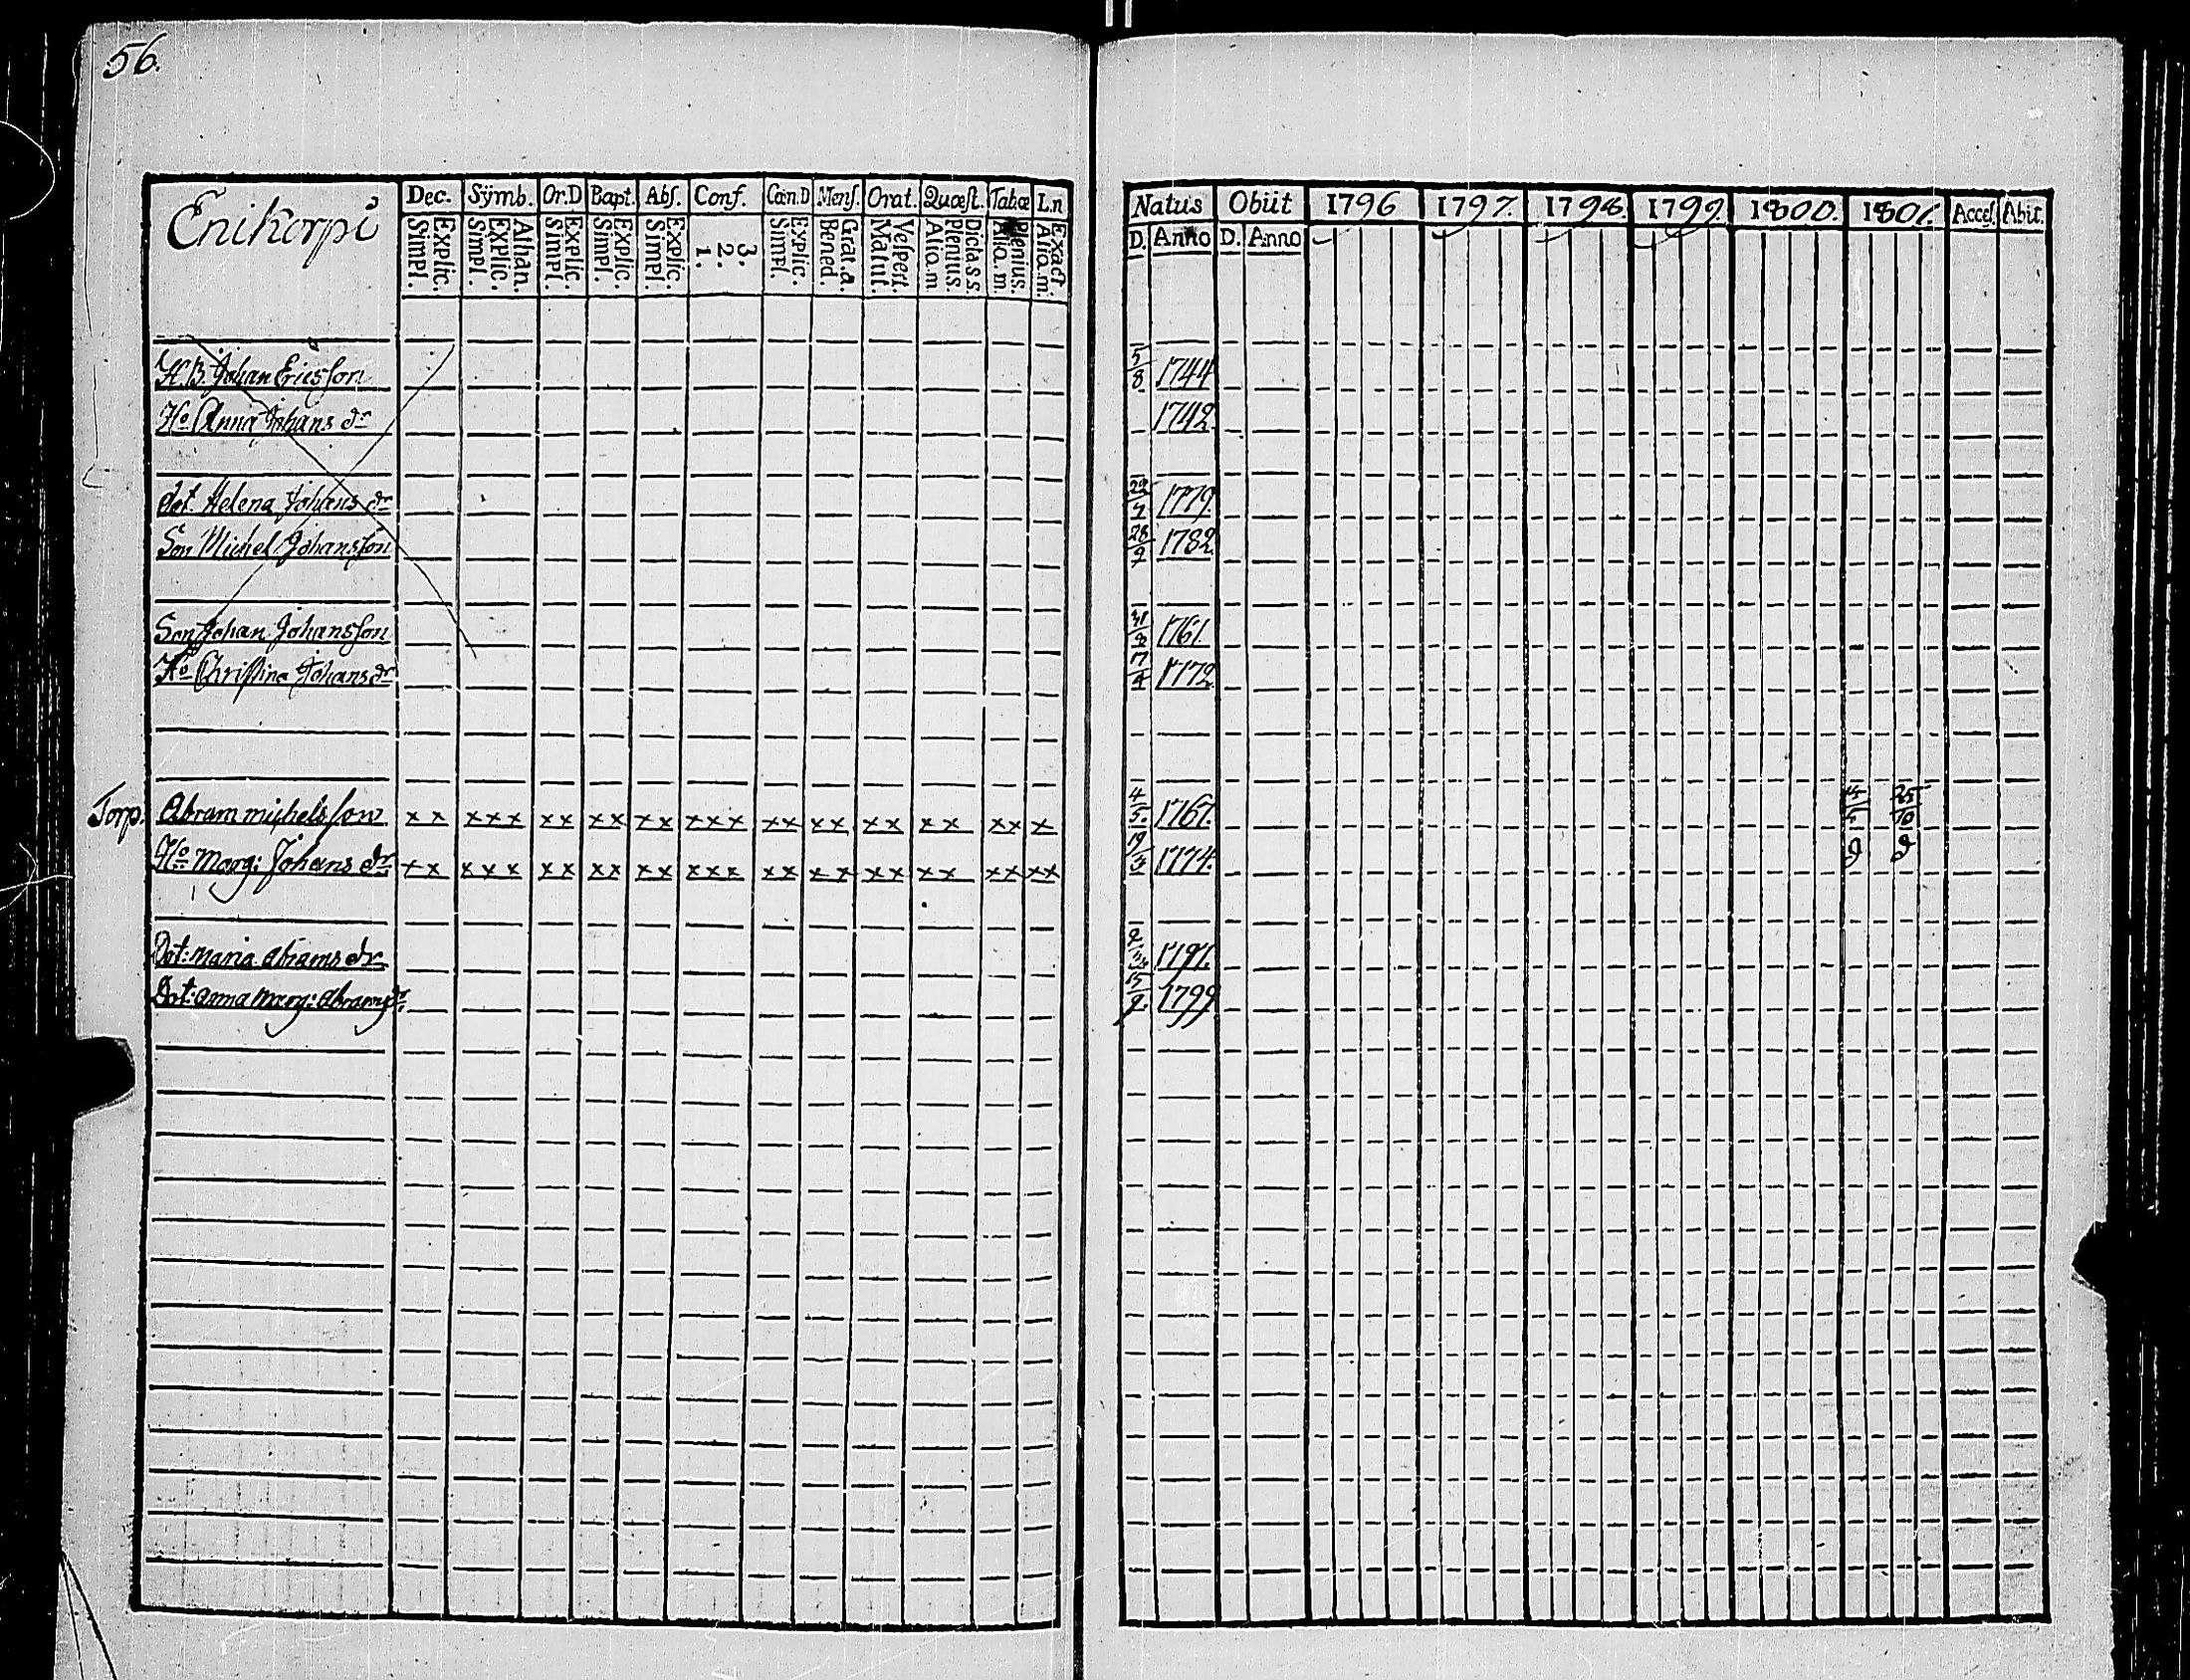 56.
Enikorpi
Dec. Sÿmb. Or.D Bapt. Abſ. Conf. Cœn.D Menſ. Orat. Quæſt. Tabæ L.n
Explic. Simpl. Athan. Explic. Simpl. Explic. Simpl. Explic. Simpl. Explic. Simpl. 3. 2. 1. Explic. Simpl. Grat.a. Bened. Veſpert. Matut. Dicta s.s. Plenius. Aliq.m Plenius. Aliq.m Exact. Aliq.m
Natus Obiit 1796 1797. 1798. 1799. 1800. 1801. Acceſ. Abit.
D. Anno D. Anno
H.B. Johan Ericsſon 5/8 1744
Ho Anna Johans dr 1742.
dot. Helena Johans dr 1779.
Son Michel Johansſon 1782
Son Johan Johansſon 1761.
Ho Christina Johans dr 1772
Torp. Abram michelsſon x x x x x x x x x x x x x x x x x x x x x x x x x 4/5. 1767. 25/10
Ho Marg: Johans dr x x x x x x x x x x x x x x x x x x x x x x x x x x 19/3 1774.
Dot: Maria Abrams dr 1791.
Dot: Anna Marg: Abrams dr 15/9. 1799